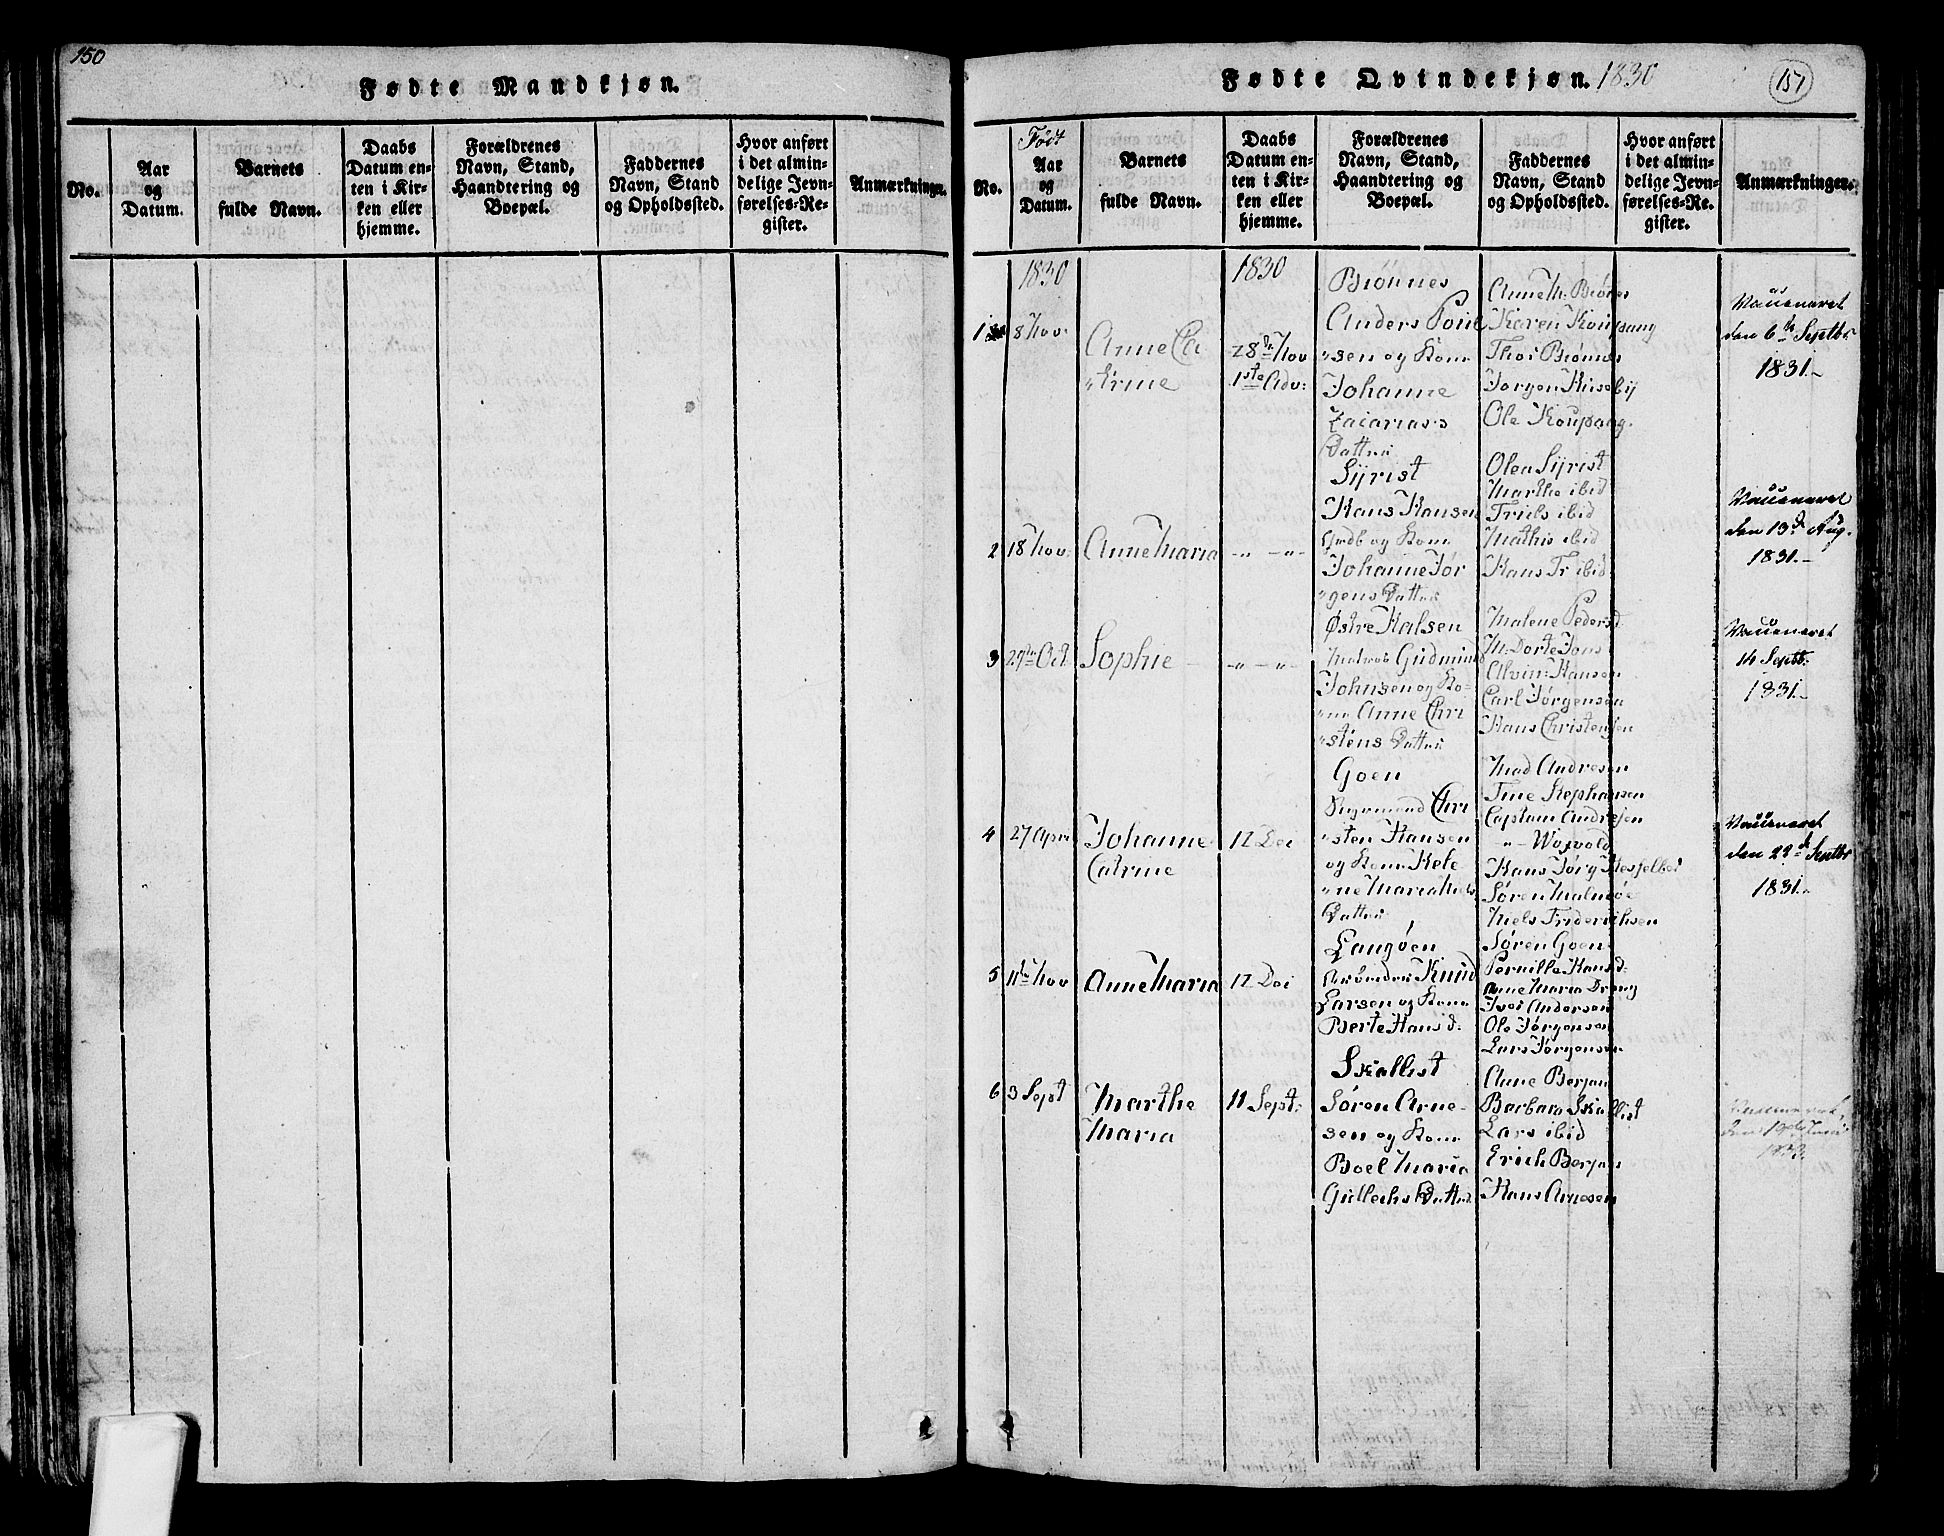 150
Fødte Mandkjøn.
No.
Aar
og
Datum.
Barnets
fulde Navn.
Daabs
Datum en-
ten i Kir-
ken eller
hjemme.
Forældrenes
Navn, Stand,
Haandtering og
Boepæl.
Faddernes
Navn, Stand
og Opholdssted.
Hvor anført
i det almin-
delige Jevn-
førelses-Re-
gister.
Anmærkninger.
Fødte Qvindekjøn. 1830
151
No.
Født
Aar
og
Datum.
Barnets
fulde Navn.
Daabs
Datum en-
ten i Kir-
ken eller
hjemme.
Forældrenes
Navn, Stand,
Haandtering og
Boepæl.
Faddernes
Navn, Stand
og Opholdssted.
Hvor anført
i det almin-
delige Jevn-
førelses-Re-
gister.
Anmærkninger.
1830
1
8 Nov:
Anne Ca
"trine
1830
28de Nov
1ste Adv:
Brönnes
Anders Poul
"sen og Kone
Johanne
Zacarias
Datter
Anne M: Brönes
Karen Koupang
Thor Brönnes
Jørgen Huseby
Ole Koupang.
Vaccineret
den 6te Septbr
1831.
2
18 Nov:
Anne Maria
-"- -"-
Syrist
Hans Hansen
og Kone
Johanne Jør
"gens Datter
Olea Syrist
Marthe ibid
Friels ibid
Mathis ibid
Hans Fr ibid
Vaccineret
den 13de Aug.
1831.
3
27de Oct
Sophie
-"- -"-
Østre Halsen
Matros Gudmund
Johnsen og Ko-
"ne Anne Chri
"stens Datter
Malene Pedersd
M: Dorte Jons
Alvin: Hansen
Carl Jørgensen
Hans Christensen
Vaccineret
14 Septb:
1831.
4
27 April
Johanne
Catrine
12 Dec
Goen
Chri
"sten Hansen
og Kone Kele
"ne Maria Niels
Datter
Mad Andresen
Tine Stephansen
Captain Andresen
-"- Woxvold
Hans Jørg
Søren Malmøe
Niels Friderichsen
Søren Goen
Vaccineret
den 22de Septbr
1831.
5
11te Nov
Anne Maria
12 Dec
Langøen
Knud
Larsen og Kone
Berte Hansd:
Pernille Hansd:
Anne Maria
Iver Andersen
Ole Jørgensen
Lars Jørgensen
6
3 Sept
Marthe
Maria
11 Sept:
Skallist
Søren Arne-
sen og Kone
Boel Maria
Gullechs Datter
Anne Berjan
Barbara Skallist
Lars ibid
Erich Berjan
Hans Arnesen
Vaccineret